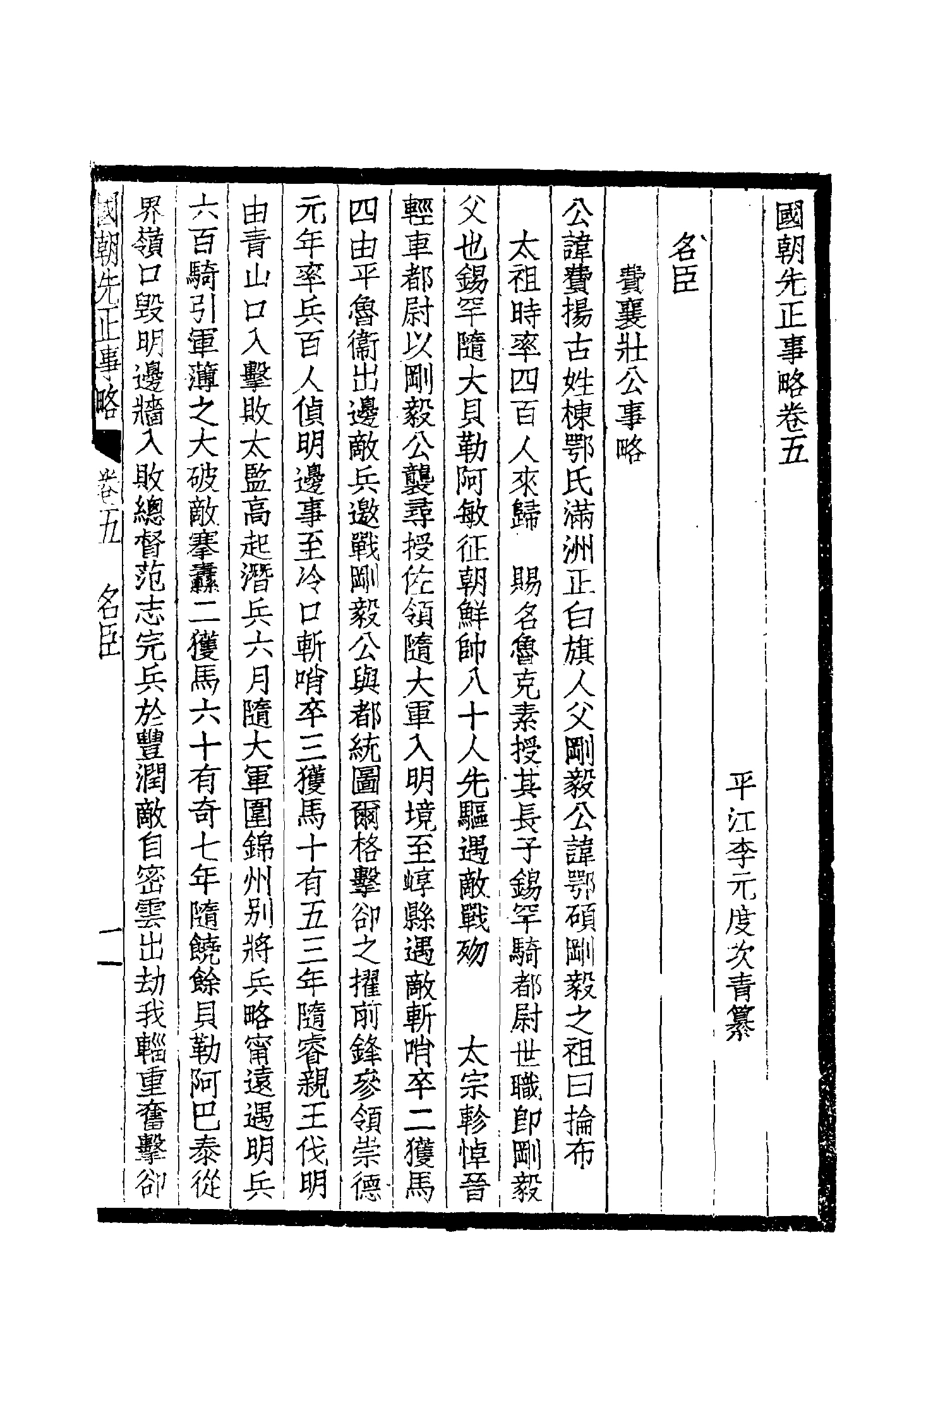 國朝先正事略卷五
平江李元度次青纂
名臣
費襄壯公事略
公諱費揚古姓棟鄂氏滿洲正白旗人父剛毅公諱鄂碩剛毅之祖曰掄布
太祖時率四百人來歸　賜名魯克素授其長子錫罕騎都尉世職卽剛毅
父也錫罕隨大貝勒阿敏征朝鮮帥八十人先驅遇敵戰歿　太宗軫悼晉
輕車都尉以剛毅公襲尋授佐領隨大軍入明境至崞縣遇敵斬哨卒二獲馬
四由平魯衞出邊敵兵邀戰剛毅公與都統圖爾格擊卻之擢前鋒參領崇德
元年率兵百人偵明邊事至冷口斬哨卒三獲馬十有五三年隨睿親王伐明
由青山口入擊敗太監高起潛兵六月隨大軍圍錦州别將兵略甯遠遇明兵
六百騎引軍薄之大破敵搴纛二獲馬六十有奇七年隨饒餘貝勒阿巴泰從
界嶺口毀明邊牆入敗總督范志完兵於豐潤敵自密雲出劫我輜重奮擊卻
國朝先正事略　卷五　名臣　一